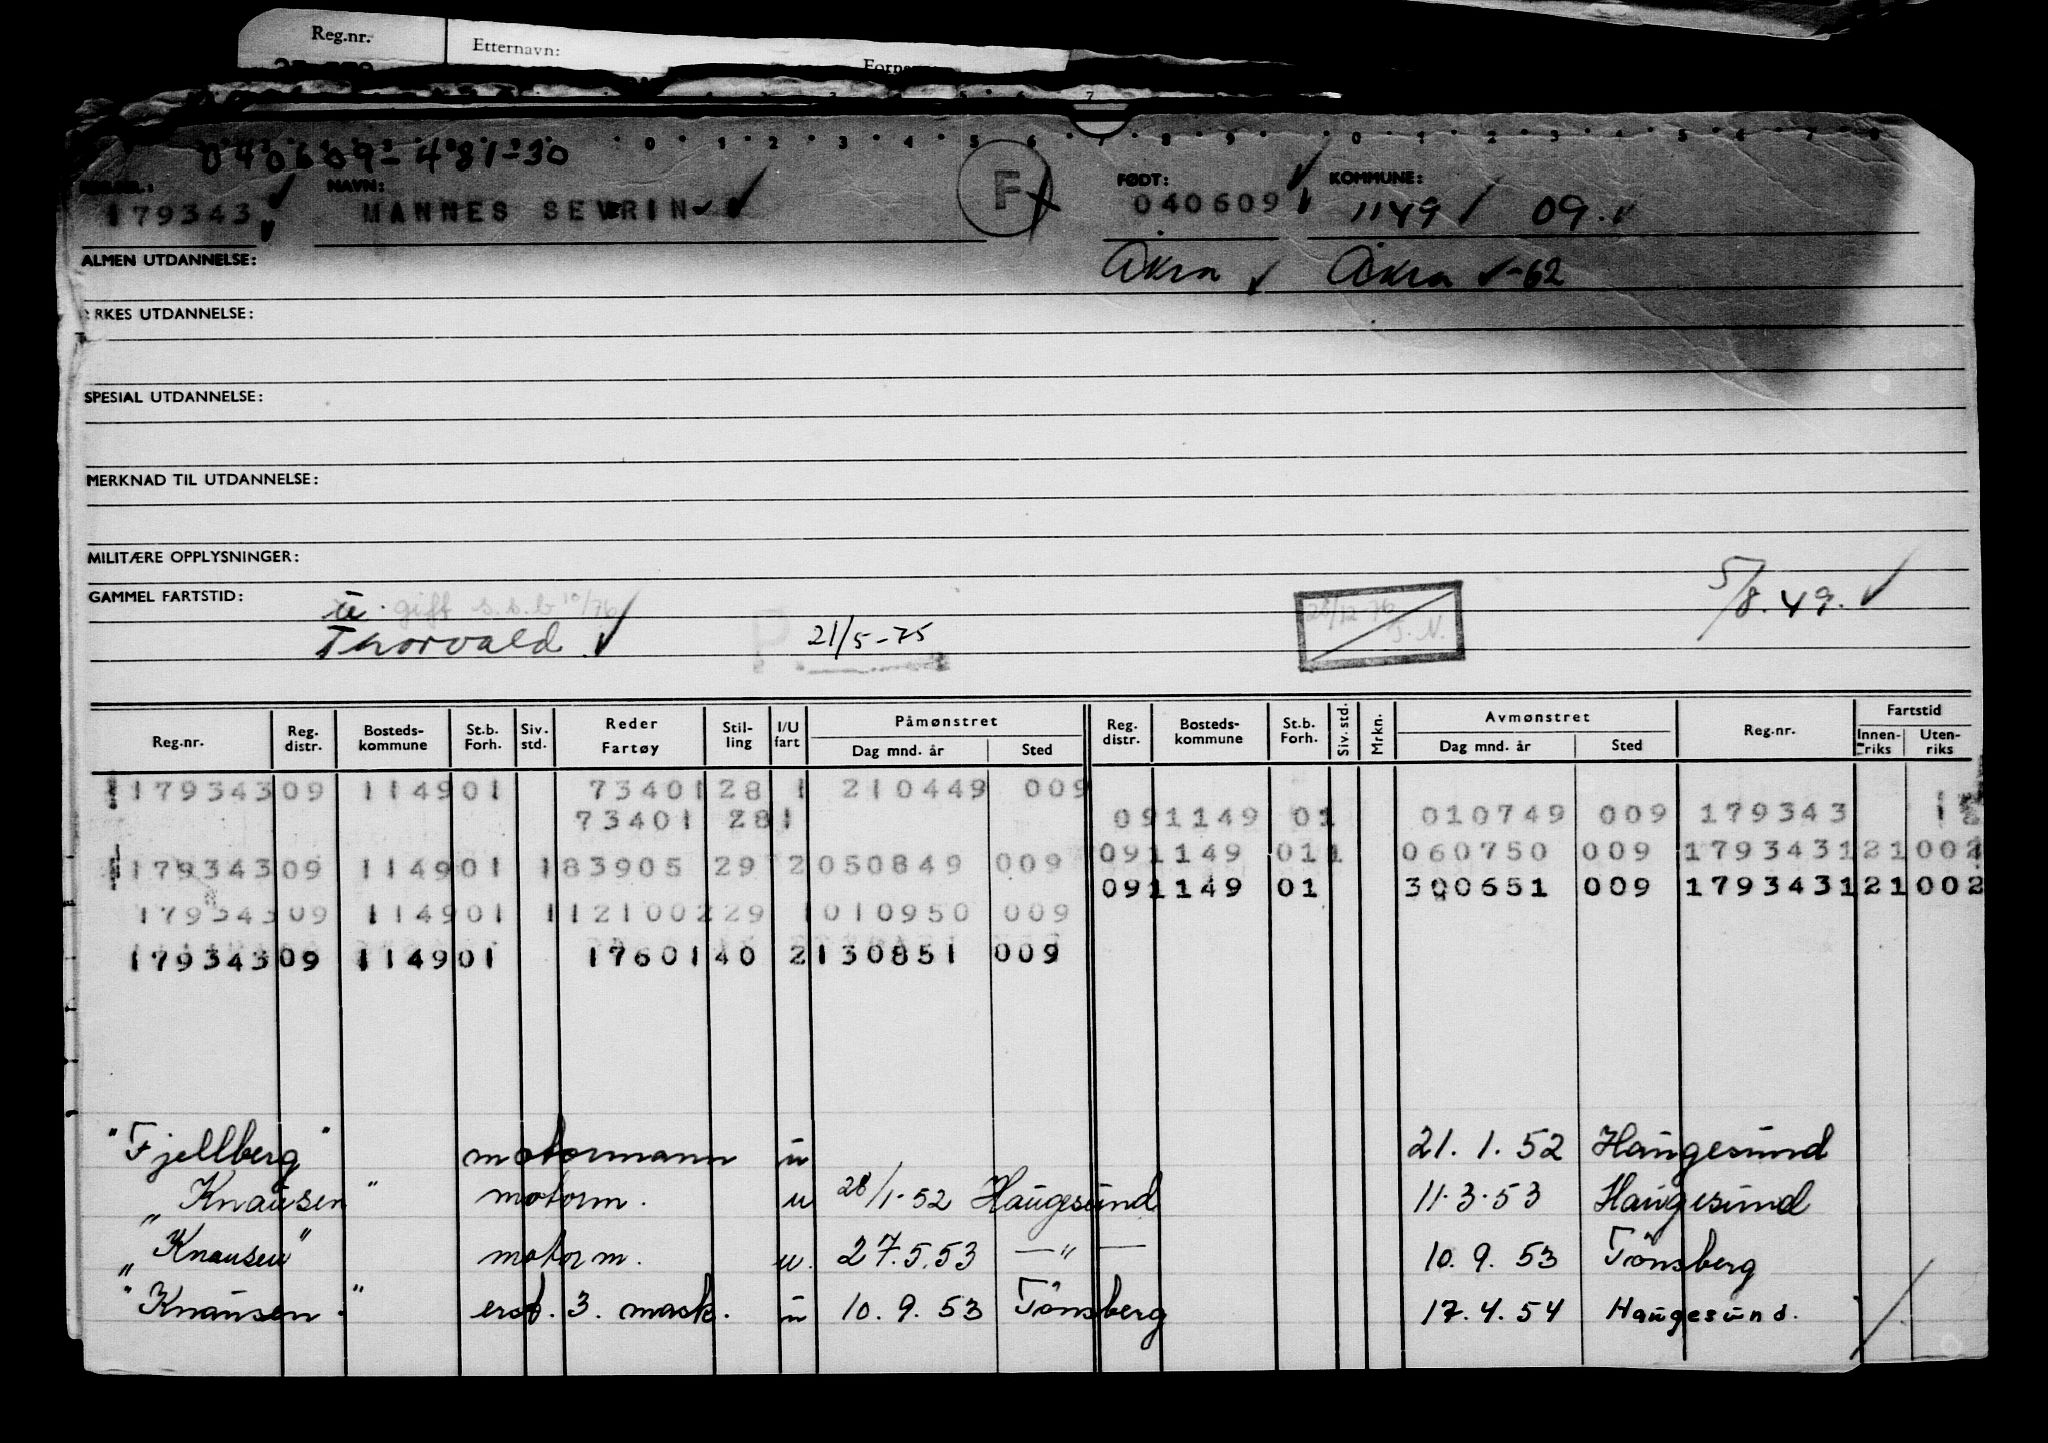 Reg.nr.
Etternavn:
040609-481-30
NAVN:
FØDT:
KOMMUNE:
179343
MANNES SEVRIN
F
040609
1149
09.
ALMEN UTDANNELSE:
Åkra
Åkra -62
RKES UTDANNELSE:
SPESIAL UTDANNELSE:
MERKNAD TIL UTDANNELSE:
MILITÆRE OPPLYSNINGER:
GAMMEL FARTSTID:
gift s.s.b 10/76
28/12-76
5/8.49.
Thorvald
P.
21/5-75
Reg.nr. Reg. distr. Bosteds- kommune St.b. Forh. Siv. std. Reder Fartøy Stil- ling I/U fart Påmønstret Dag mnd. år Sted Reg. distr. Bosteds- kommune St.b. Forh. Siv. std. Mrkn. Avmønstret Dag mnd. år Sted Reg.nr. Fartstid Innen- riks Uten- riks
179343 09 1149 01 73401 28 1 210449 009
73401 28 1 09 1149 01 010749 009 179343
09 1149 01 1 060750 009 179343 1 21 002
179343 09 1149 01 183905 29 2 050849 009
09 1149 01 300651 009 179343 1 21 002
179343 09 1149 01 1121002 29 1 010950 009
179343 09 1149 01 17601 40 2 130851 009
"Fjellberg" motormann u 21. 1. 52 Haugesund
"Knausen" motorm. u 28/1-52 Haugesund 11.3.53 Haugesund
"Knausen" motorm. u. 27.5.53 —"— 10. 9. 53 Tönsberg
"Knausen." erst. 3. mask. u 10. 9. 53 Tönsberg 17.4.54 Haugesund.